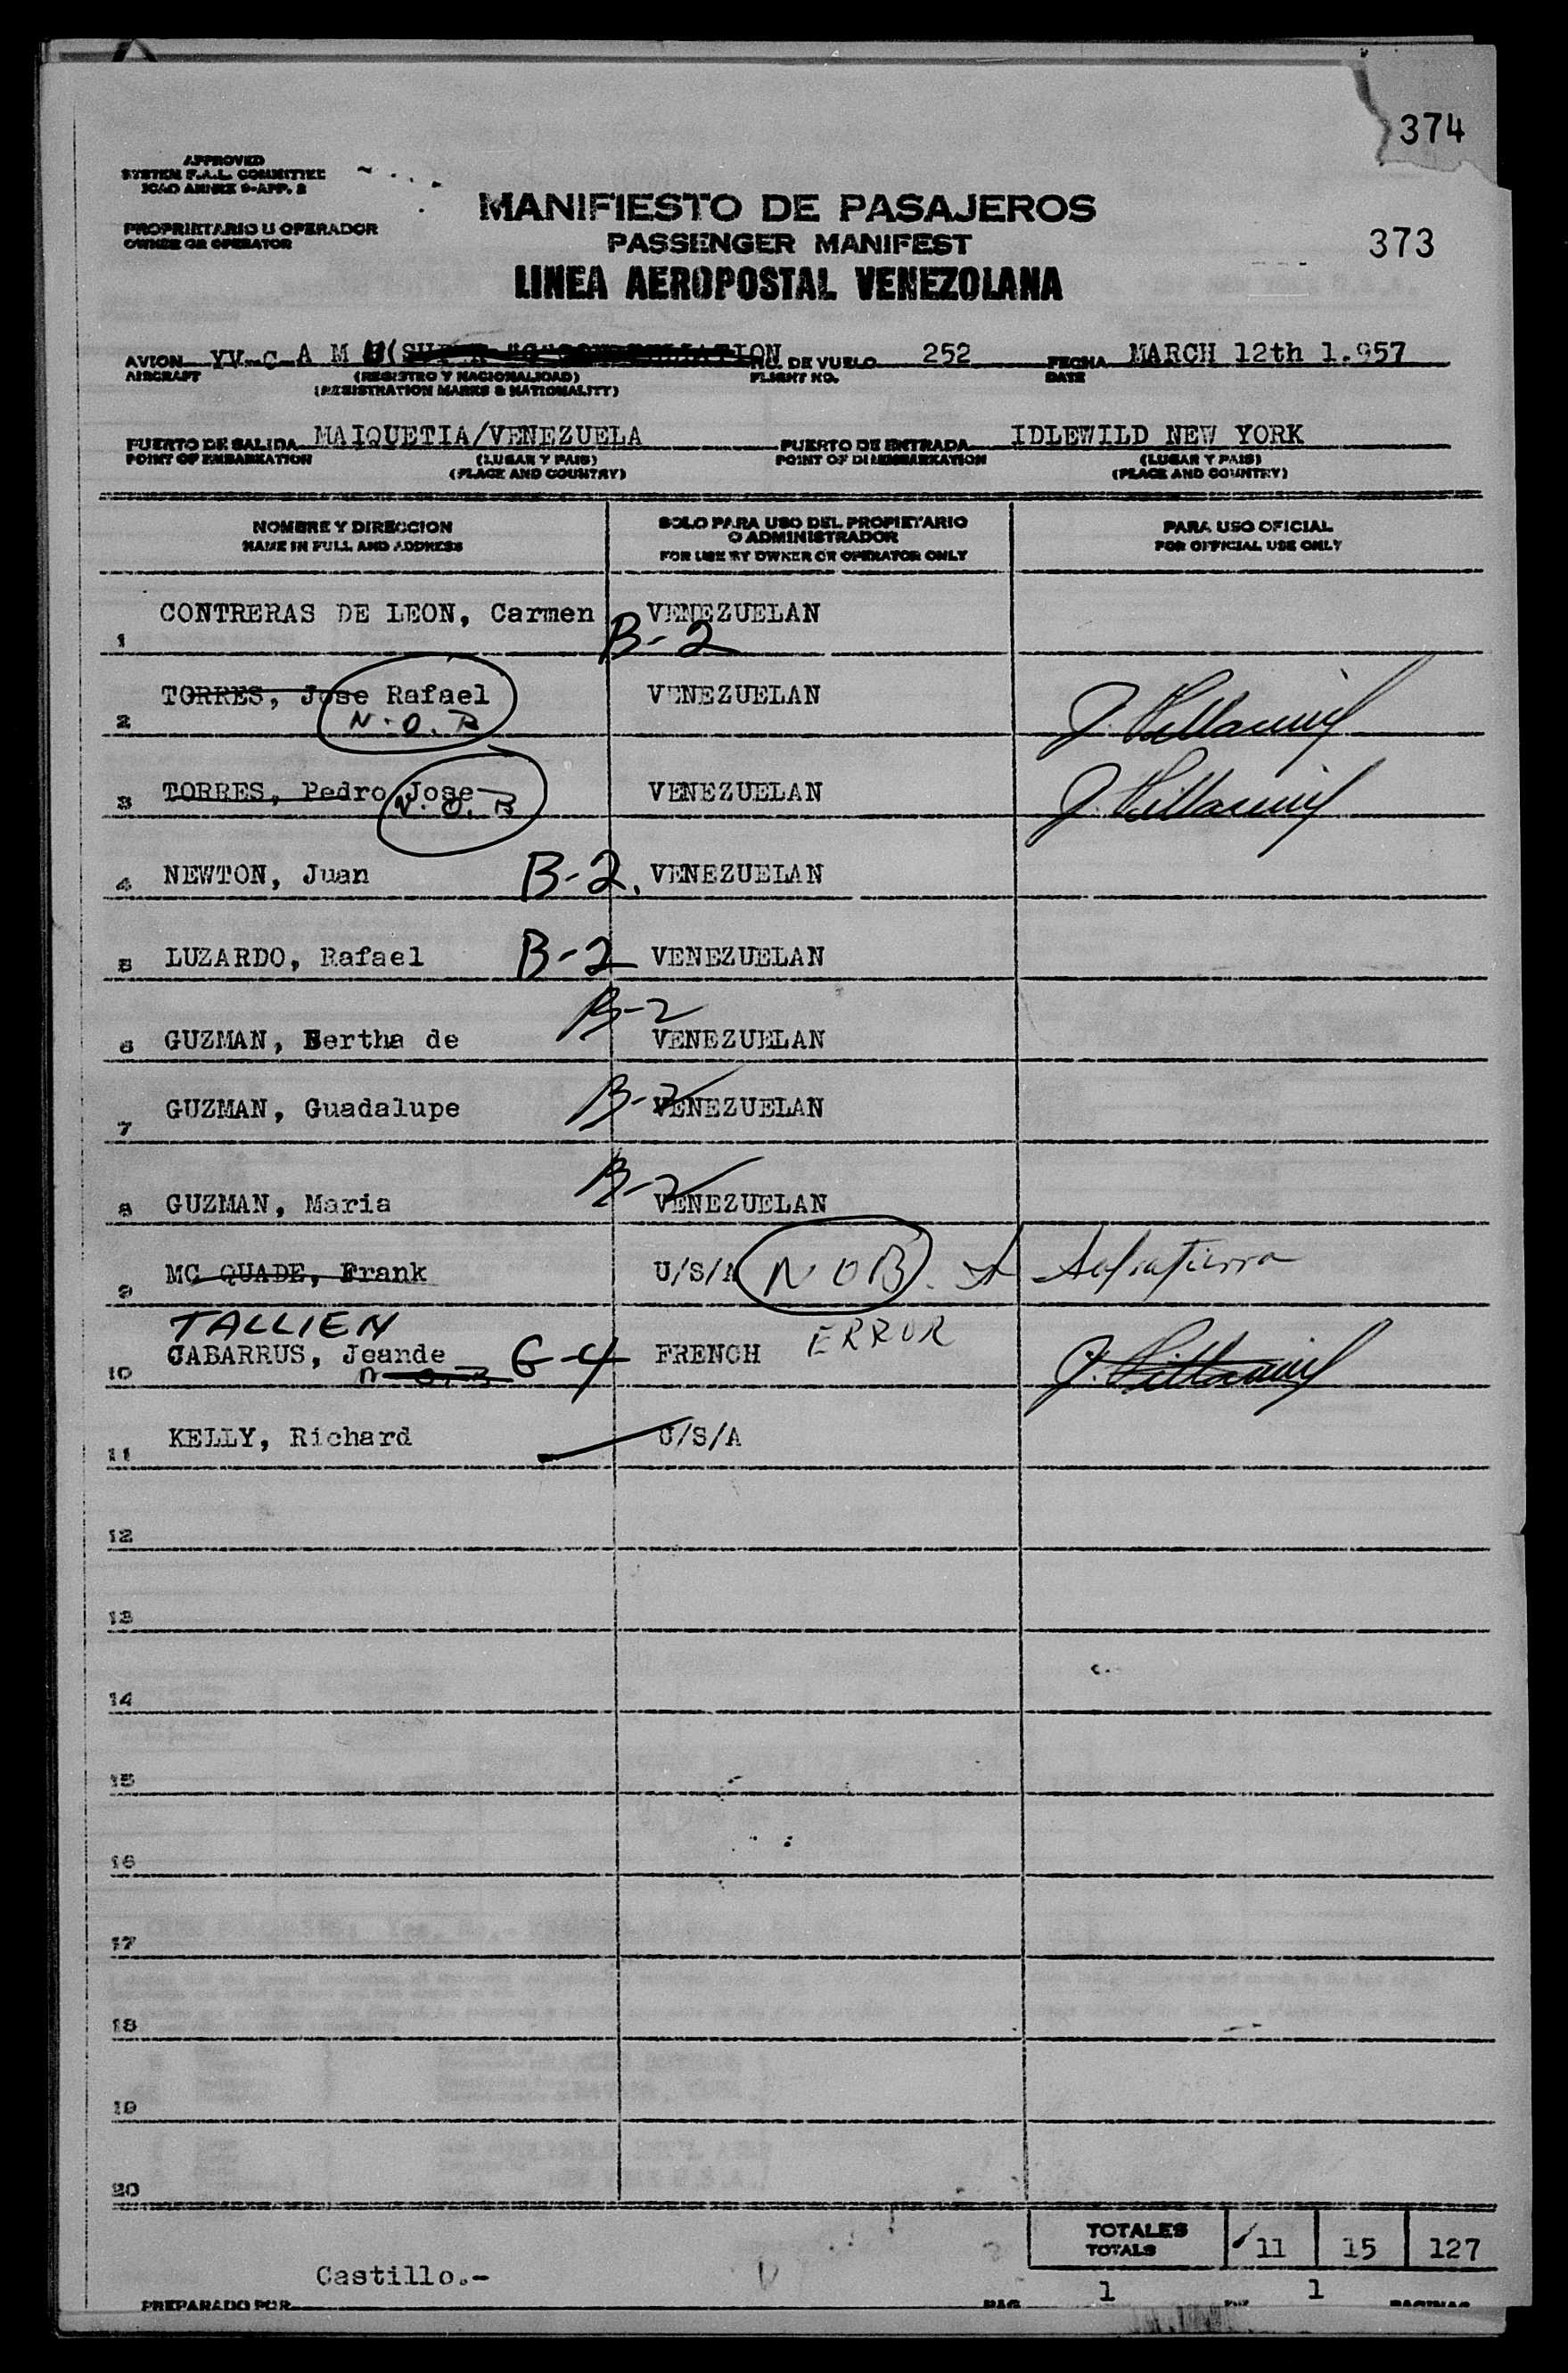 374
APPROVED
SYSTEM F.A.L. COMMITTEE
ICAO ANNEX 9-APP. 2
MANIFIESTO DE PASAJEROS
PROPRIETARIO U OPERADOR
OWNER OR OPERATOR
PASSENGER MANIFEST
373
LINEA AEROPOSTAL VENEZOLANA
AVION YV-C A M NO. DE VUELO 252 FECHA MARCH 12th 1.957
AIRCRAFT (REGISTRO Y NACIONALIDAD) FLIGHT NO. DATE
(REGISTRATION MARKS & NATIONALITY)
PUERTO DE SALIDA MAIQUETIA/VENEZUELA PUERTO DE ENTRADA IDLEWILD NEW YORK
POINT OF EMBARKATION (LUGAR Y PAIS) POINT OF DISEMBARKATION (LUGAR Y PAIS)
(PLACE AND COUNTRY) (PLACE AND COUNTRY)
NOMBRE Y DIRECCION SOLO PARA USO DEL PROPIETARIO PARA USO OFICIAL
O ADMINISTRADOR
NAME IN FULL AND ADDRESS FOR USE BY OWNER OR OPERATOR ONLY FOR OFFICIAL USE ONLY
1 CONTRERAS DE LEON, Carmen VENEZUELAN
B-2
2 TORRES, Jose Rafael VENEZUELAN
N.O.B
3 TORRES, Pedro Jose VENEZUELAN
N.O.B
4 NEWTON, Juan B-2. VENEZUELAN
5 LUZARDO, Rafael B-2 VENEZUELAN
B-2
6 GUZMAN, Bertha de VENEZUELAN
7 GUZMAN, Guadalupe B-2 VENEZUELAN
B-2
8 GUZMAN, Maria VENEZUELAN
9 MC QUADE, Frank U/S/A NOB
TALLIEN ERROR
10 CABARRUS, Jeande G-4 FRENCH
N.O.B
11 KELLY, Richard U/S/A
12
13
14
15
16
17
18
19
20
TOTALES
TOTALS 11 15 127
Castillo.-
PREPARADO POR PAG. 1 DE 1 PAGINAS